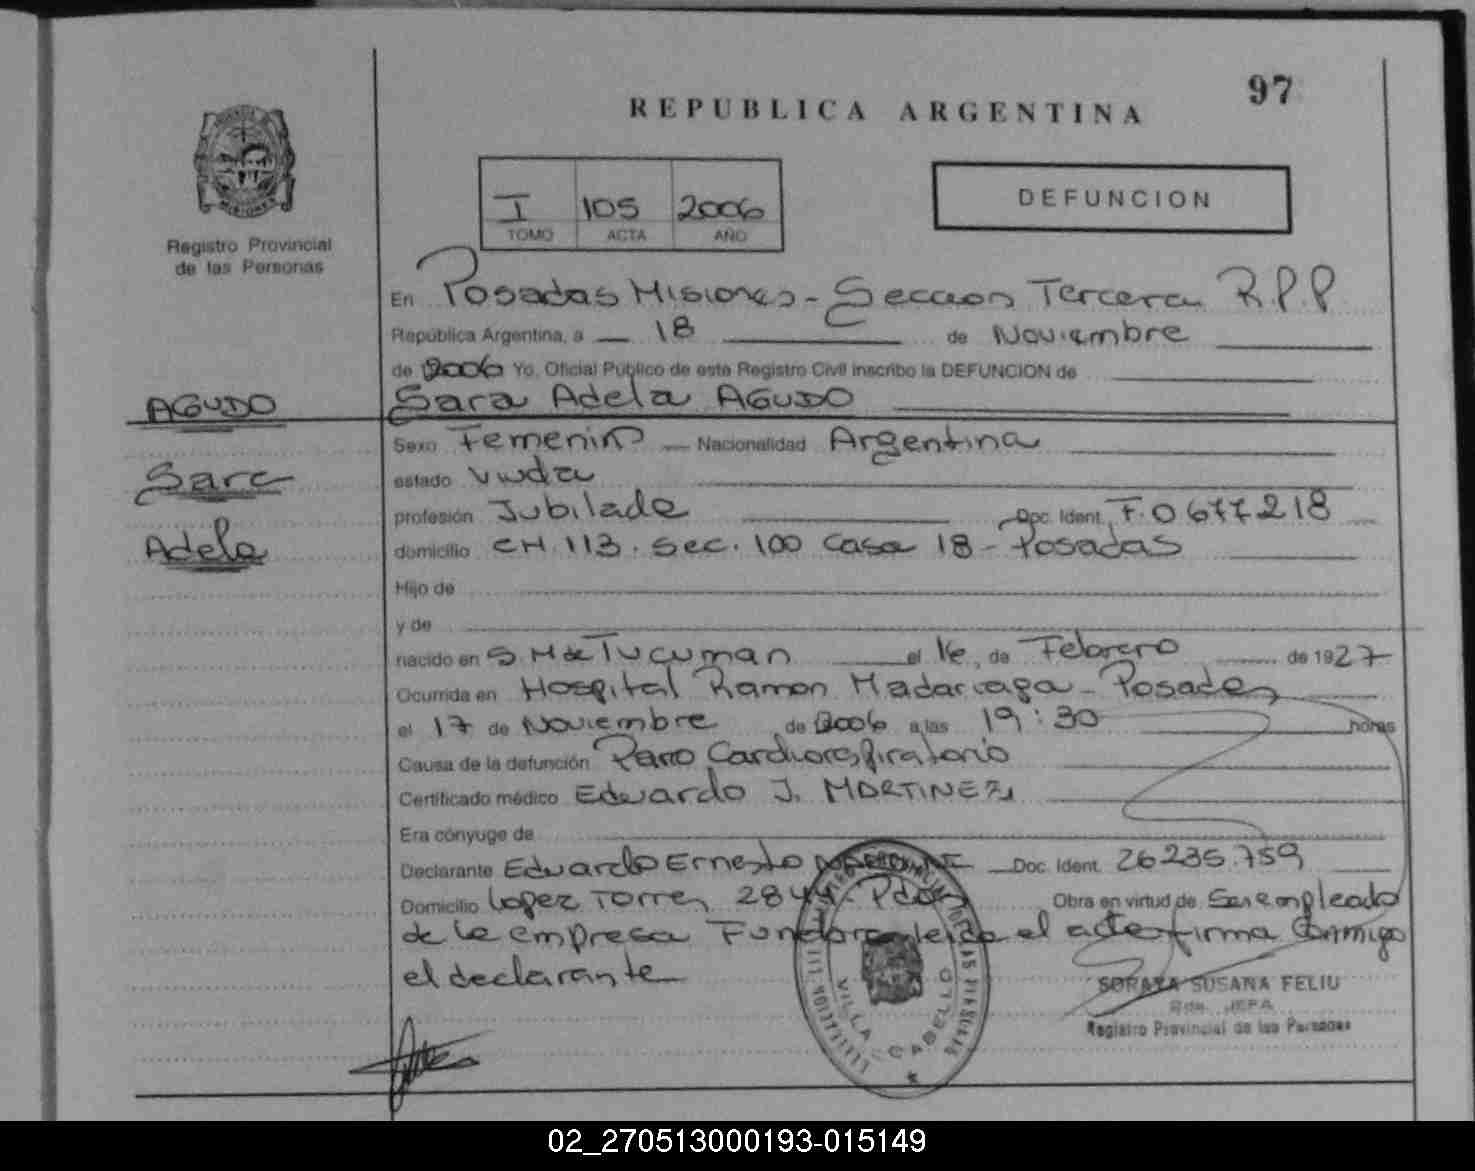 97
REPUBLICA ARGENTINA
DEFUNCION
I 105 2006
TOMO ACTA AÑO
MISIONES
Registro Provincial
de las Personas
En Posadas Misiones - Seccion Tercera R.P.P
República Argentina, a 18 de Noviembre
de 2006 Yo, Oficial Público de este Registro Civil inscribo la DEFUNCION de
AGUDO
Sara Adela AGUDO
Sexo Femenino Nacionalidad Argentina
Sara
estado Viuda
profesión Jubilada Doc. Ident. F.0677218
Adela
domicilio CH. 113. Sec. 100 Casa 18 - Posadas
Hijo de
y de
nacido en S.M de Tucuman el 16 de Febrero de 1927
Ocurrida en Hospital Ramon Madariaga - Posadas
el 17 de Noviembre de 2006 a las 19:30 horas
Causa de la defunción Paro Cardiorespiratorio
Certificado médico Eduardo J. MARTINEZ
Era cónyuge de
Declarante Eduardo Ernesto Doc. Ident. 26235.759
Domicilio Lopez Torres 2844 - Pdas Obra en virtud de Ser empleado
de la empresa leida el acta firma Conmigo
el declarante
VILLA CABELLO
SORAYA SUSANA FELIU
JEFA
Registro Provincial de las Personas
02_270513000193-015149